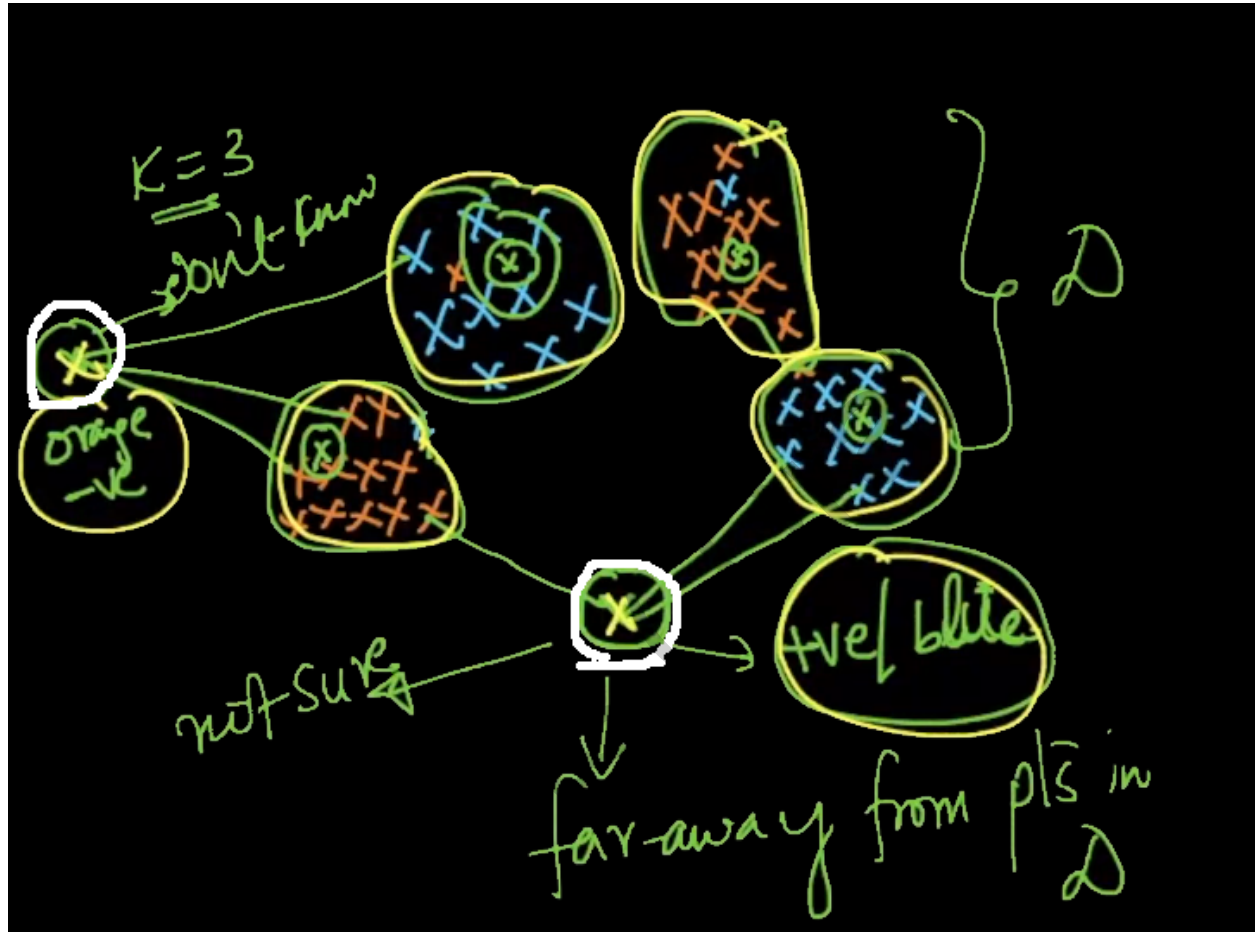 K = 3
don't know
D
orange
-ve
+ve/ blue
not sure
far away from pts in
D